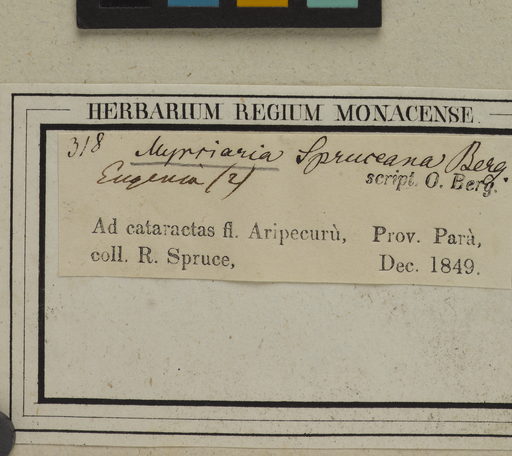 HERBARIUM REGIUM MONACENSE.
318 Myrciaria Spruceana Berg.
Eugenia (2) script. O. Berg.
Ad cataractas fl. Aripecurù, Prov. Parà,
coll. R. Spruce, Dec. 1849.